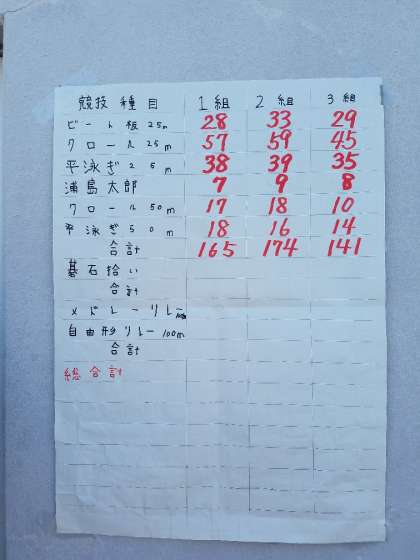 競技種目 1組 2組 3組
ビート板25m 28 33 29
クロール25m 57 59 45
平泳ぎ25m 38 39 35
浦島太郎 7 9 8
クロール50m 17 18 10
平泳ぎ50m 18 16 14
合計 165 174 141
碁石拾い
合計
メドレーリレー
自由形リレー100m
合計
総合計